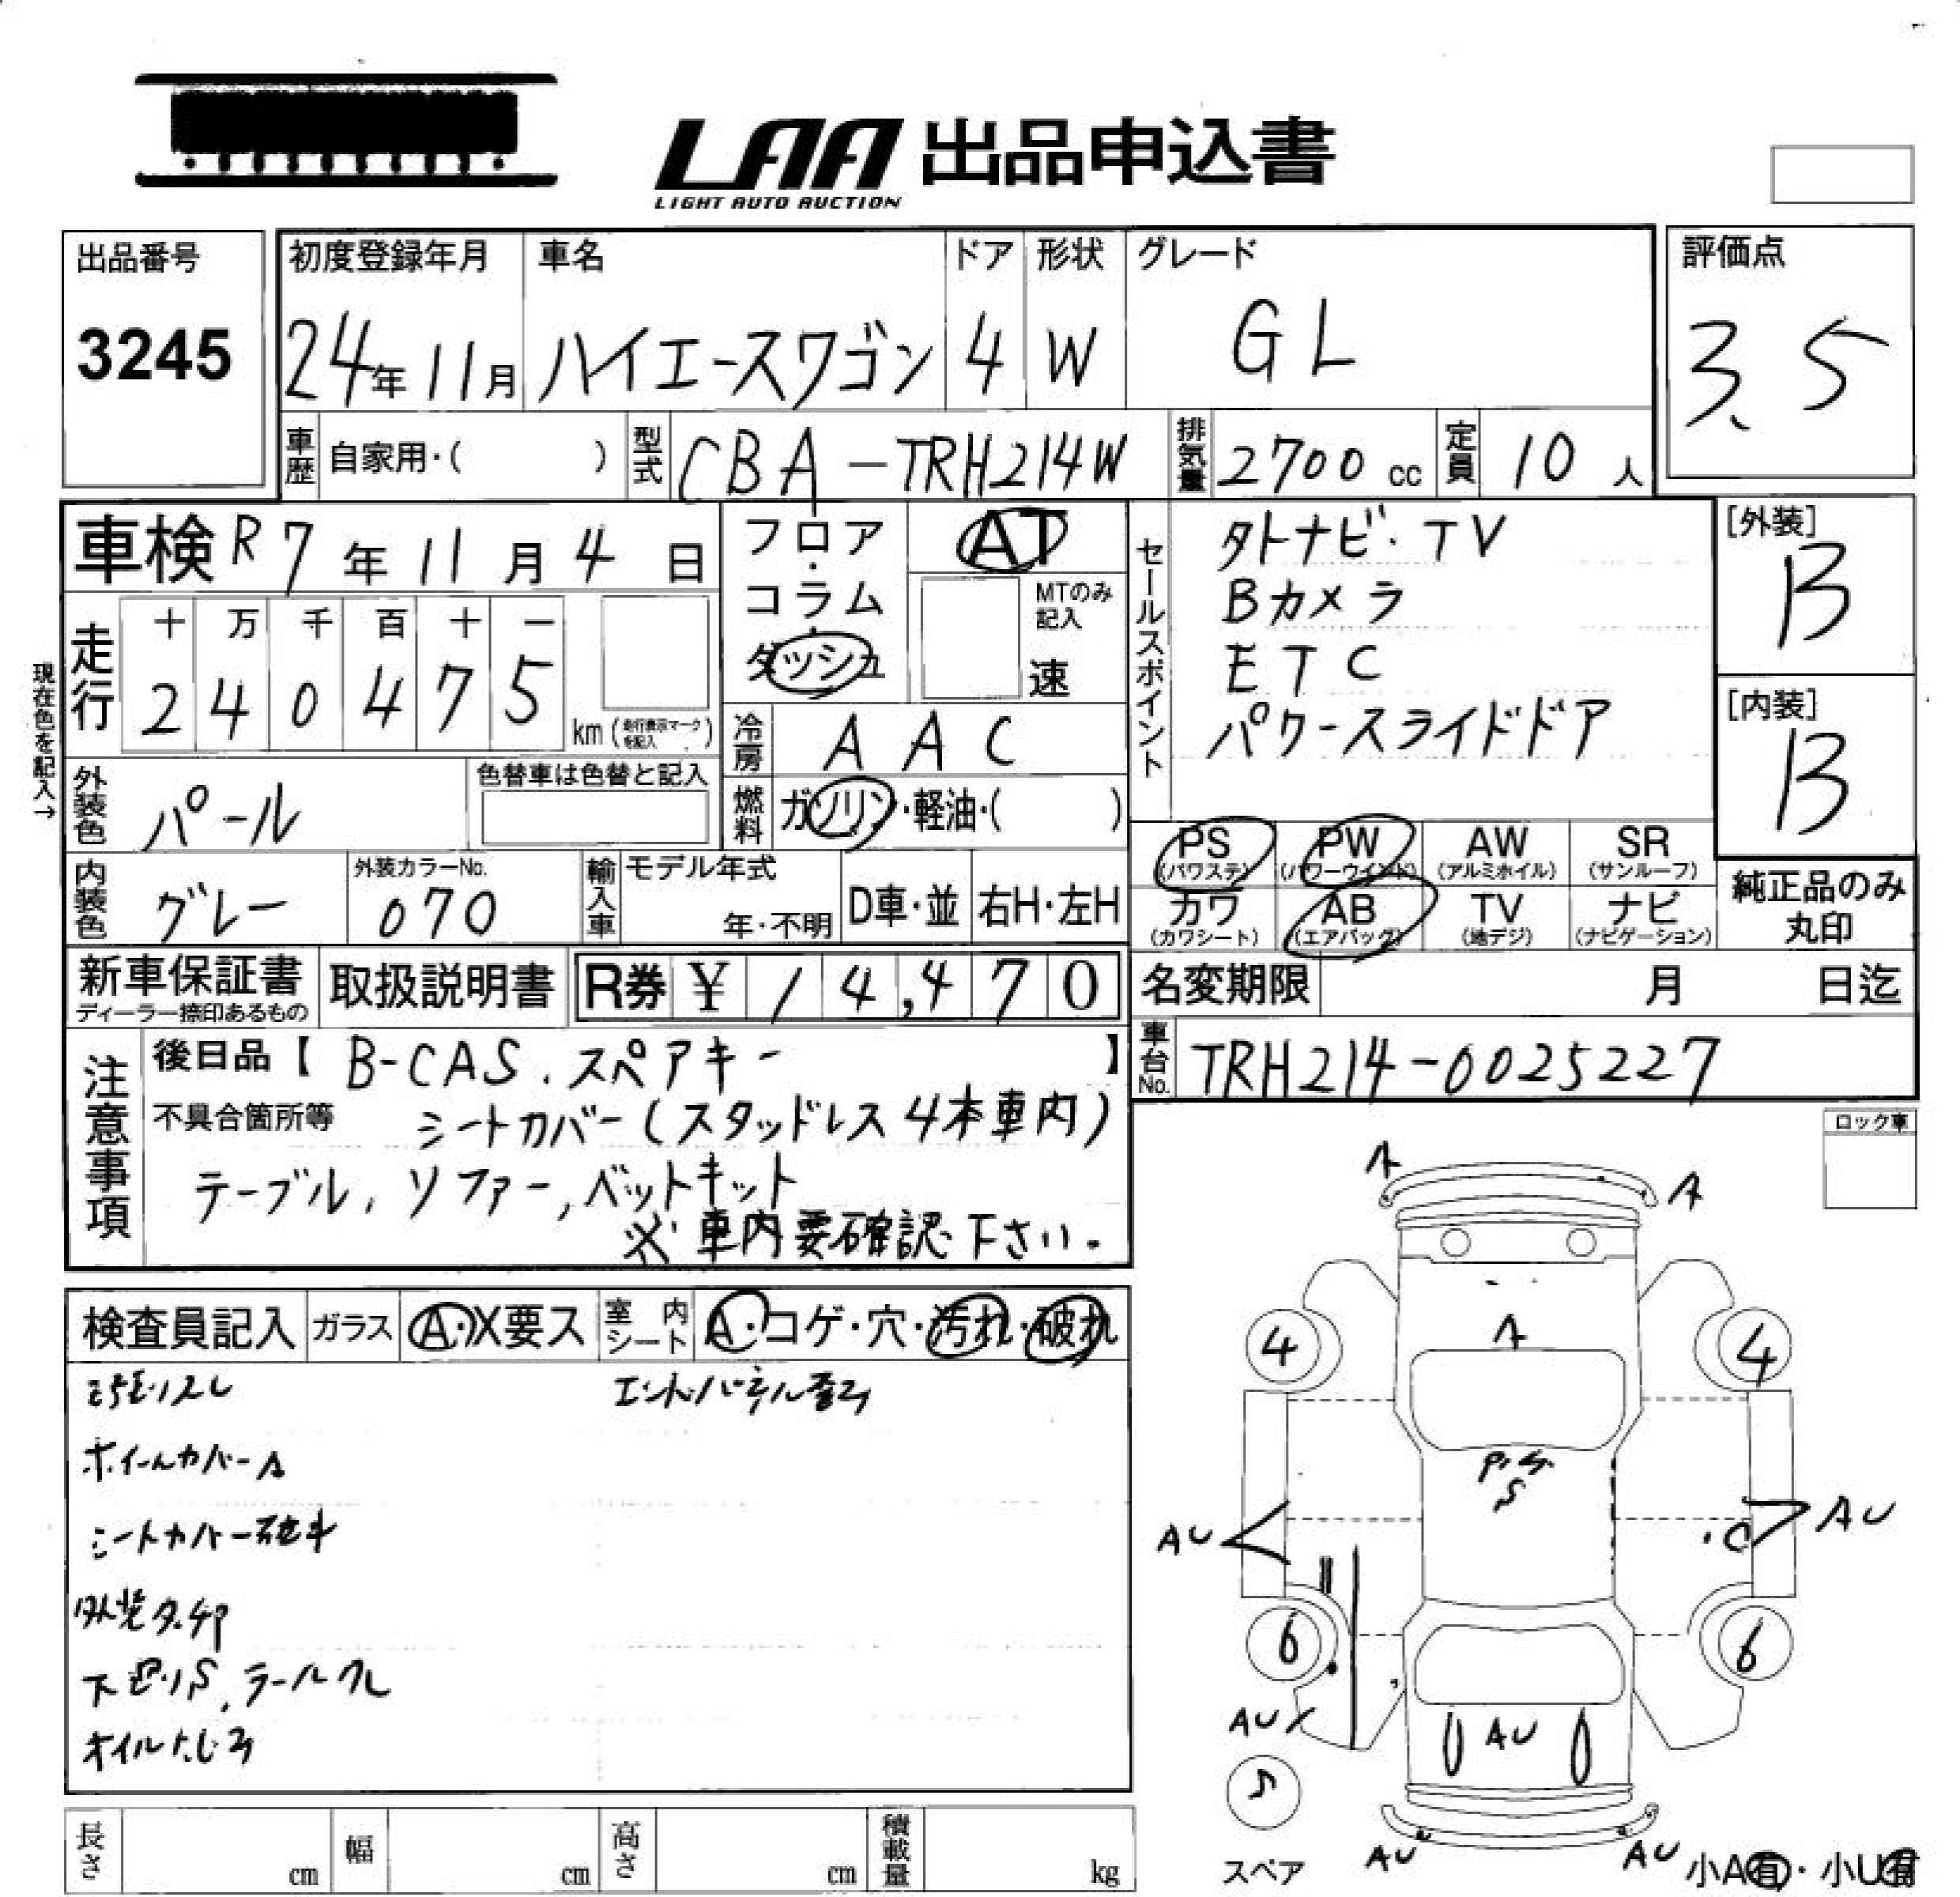 LAA 出品申込書
LIGHT AUTO AUCTION
出品番号
3245
初度登録年月
24年11月
車名
ハイエースワゴン
ドア
4
形状
W
グレード
GL
評価点
3.5
車歴 自家用・( )
型式 CBA-TRH214W
排気量 2700 cc
定員 10 人
車検 R7年11月4日
フロア・コラム・ダッシュ
AT
MTのみ記入
速
セールスポイント
外ナビ・TV
Bカメラ
ETC
パワースライドドア
[外装]
B
[内装]
B
現在色を記入→
走行
十 万 千 百 十 一
2 4 0 4 7 5
km (走行表示マークを記入 )
冷房 AAC
燃料 ガソリン・軽油・( )
外装色 パール
色替車は色替と記入
内装色 グレー
外装カラーNo.
070
輸入車
モデル年式
年・不明
D車・並
右H・左H
PS (パワステ)
PW (パワーウインド)
AW (アルミホイル)
SR (サンルーフ)
カワ (カワシート)
AB (エアバッグ)
TV (地デジ)
ナビ (ナビゲーション)
純正品のみ丸印
新車保証書
ディーラー捺印あるもの
取扱説明書
R券 ¥14,470
名変期限 月 日迄
車台No. TRH214-0025227
注意事項
後日品【 B-CAS、スペアキー 】
不具合箇所等 シートカバー(スタッドレス4本車内)
テーブル, ソファー, ベットキット
※車内要確認下さい。
ロック車
検査員記入
ガラス A・X要ス
室内シート A・コゲ・穴・汚れ・破れ
エンドパネル歪ミ
ホイールカバーA
シートカバー破れ
オイルにじみ
A
A
A
4
4
S
AU
C
AU
6
6
AU
AU
AU
AU
スペア
小A有・小U有
長さ cm
幅 cm
高さ cm
積載量 kg